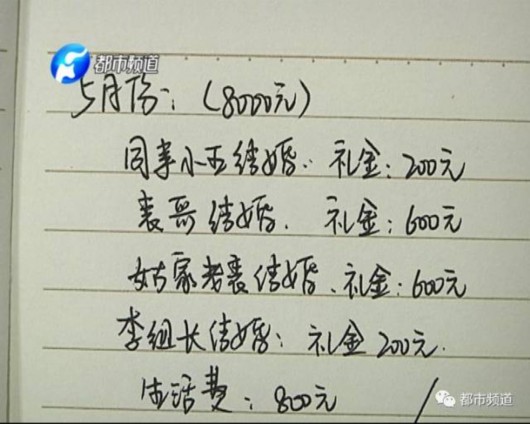 都市频道
5月份：（8000元）
同事小王结婚：礼金：200元
表哥结婚、礼金：600元
姑家老表结婚、礼金：600元
李组长结婚：礼金200元.
生活费：800元
都市频道